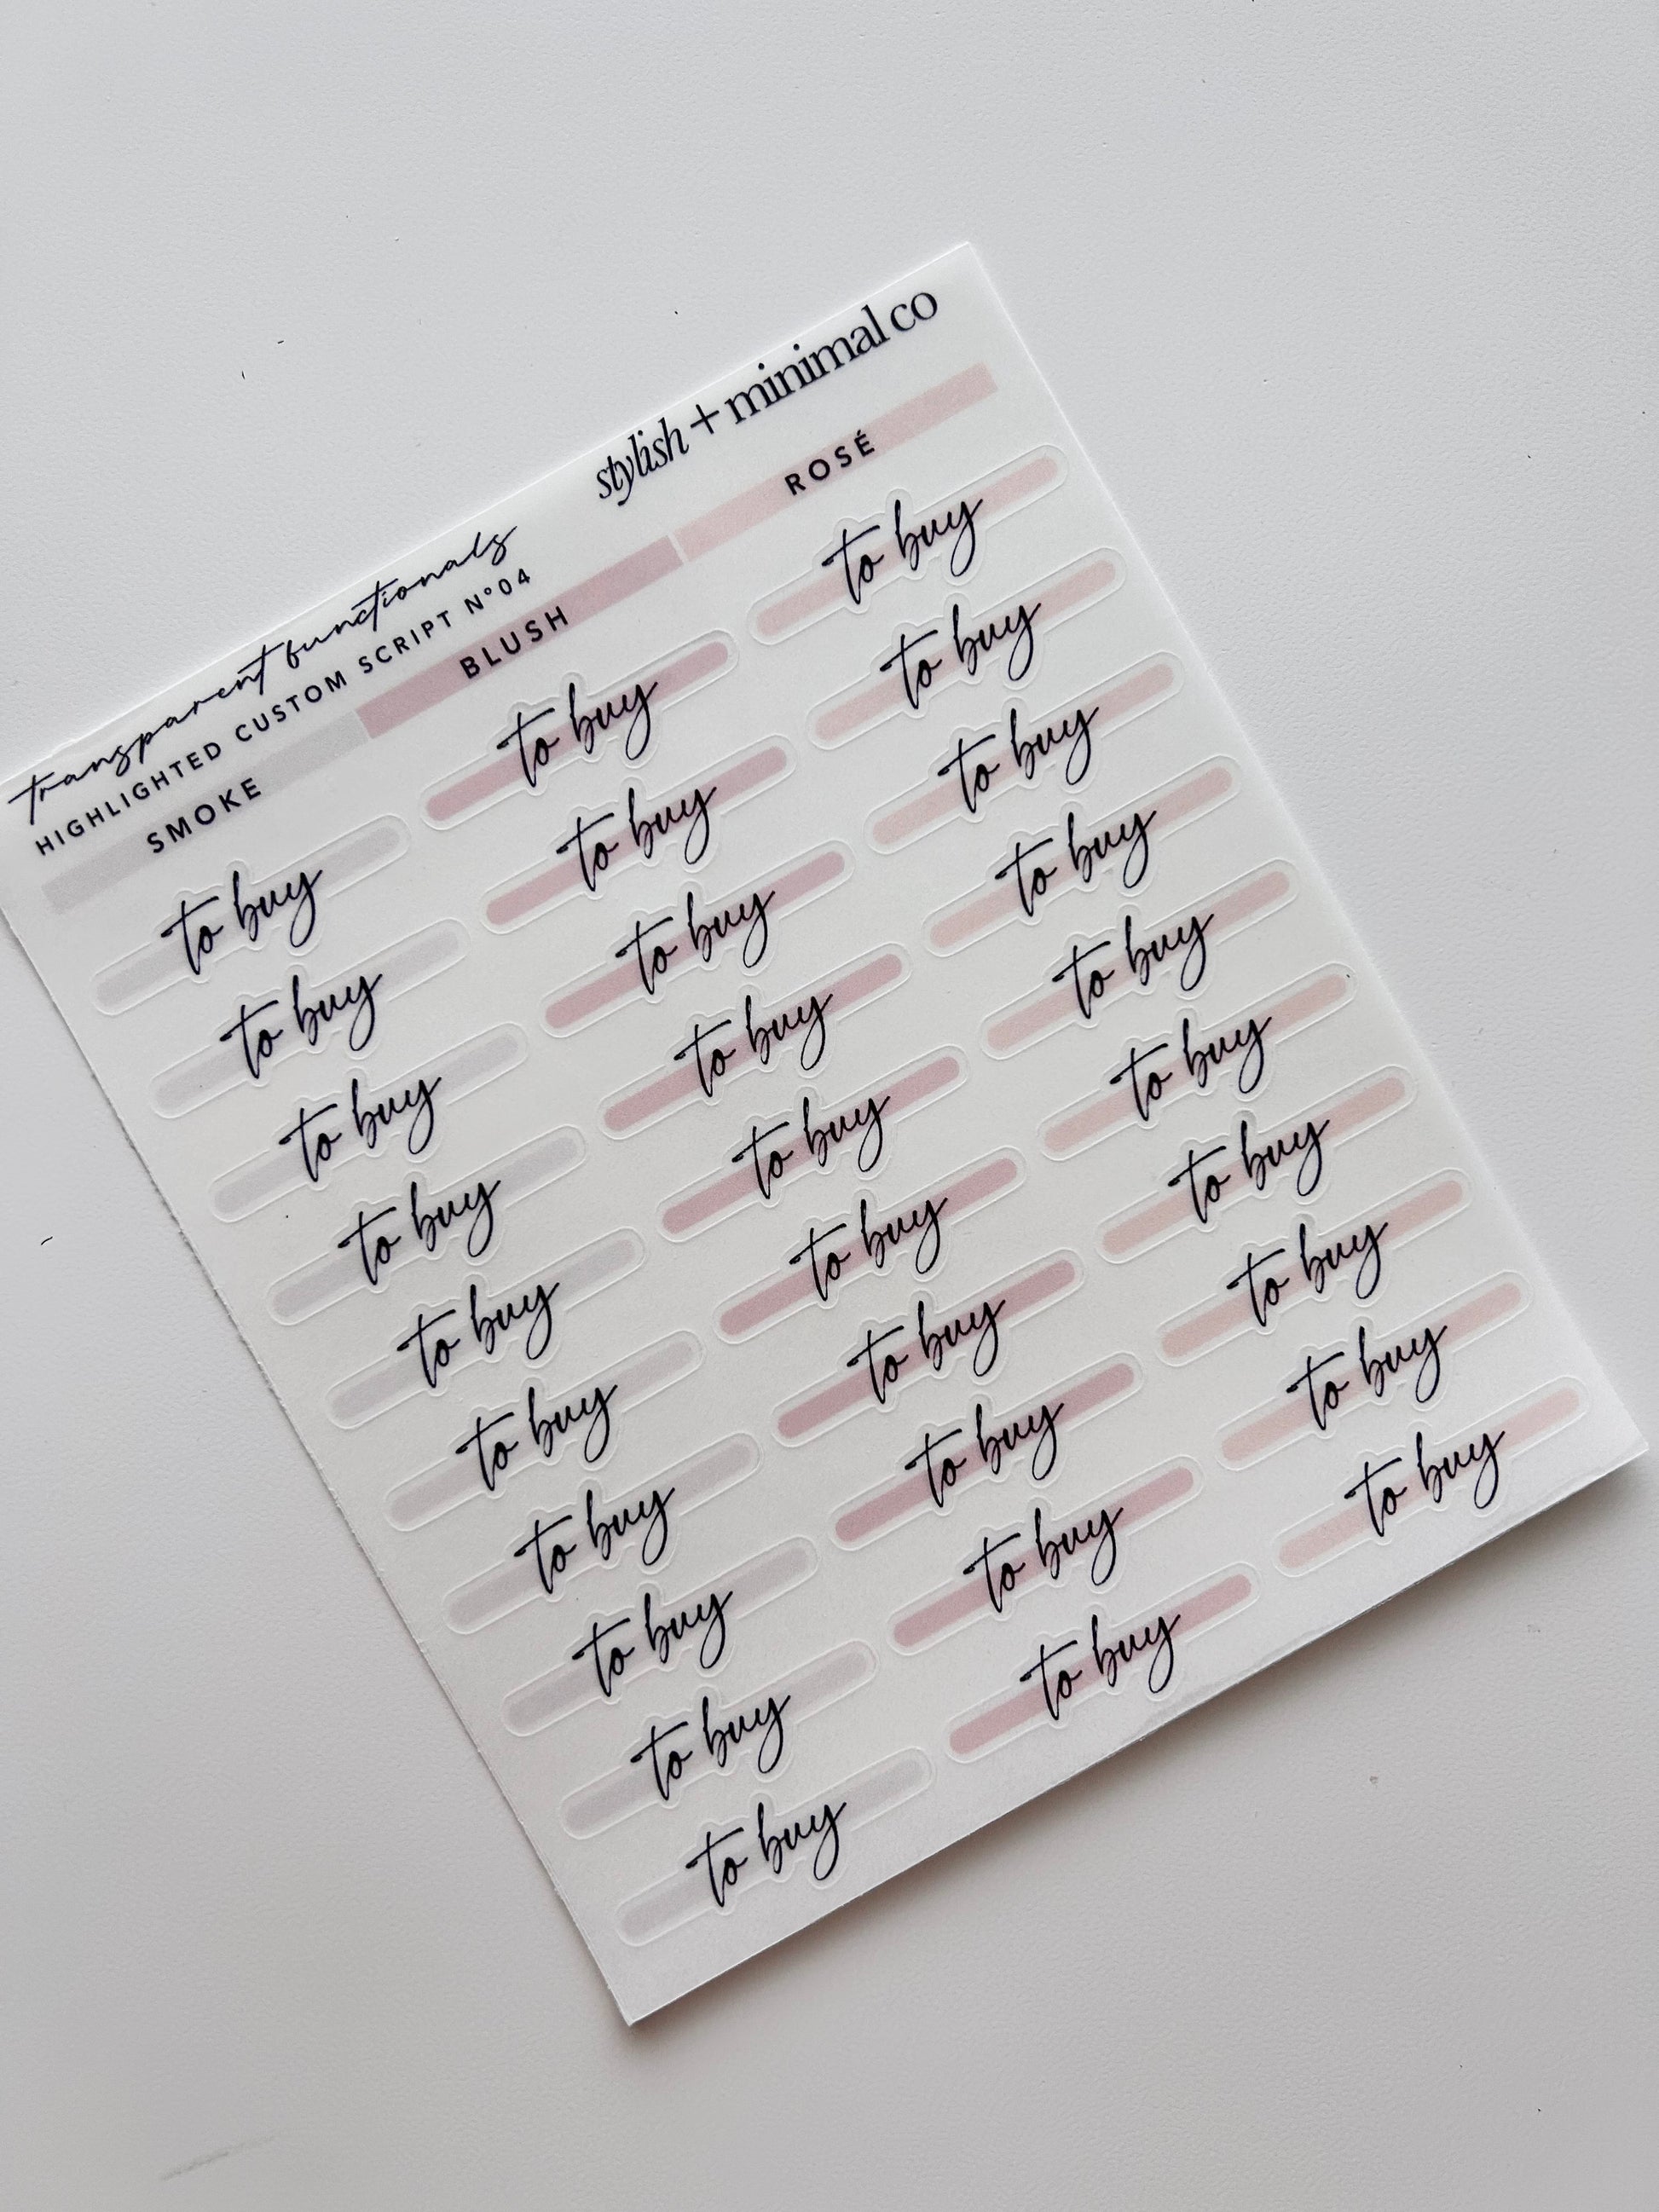 transparent functionals
stylish + minimal co
HIGHLIGHTED CUSTOM SCRIPT N°04
SMOKE BLUSH ROSÉ
to buy to buy to buy
to buy to buy to buy
to buy to buy to buy
to buy to buy to buy
to buy to buy to buy
to buy to buy to buy
to buy to buy to buy
to buy to buy to buy
to buy to buy to buy
to buy to buy to buy